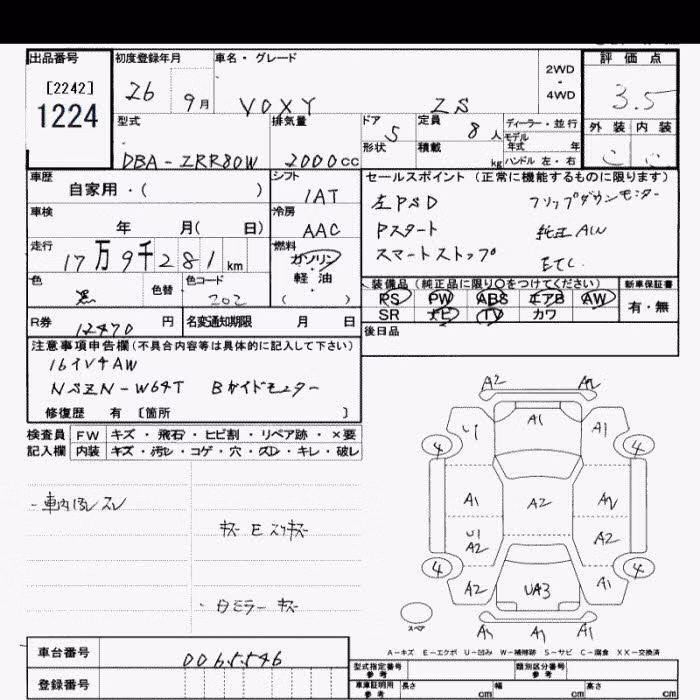 出品番号 初度登録年月 車名・グレード 評価点
[2242] 26 9月 VOXY ZS 2WD・4WD 3.5
1224
型式 排気量 ドア 定員 ディーラー・並行 外装 内装
モデル
DBA-ZRR80W 2000cc 5 8人 年式 年
形状 積載 kg ハンドル 左・右
車歴 シフト セールスポイント (正常に機能するものに限ります)
自家用・( ) IAT 左PSD フリップダウンモニター
車検 冷房
年 月( 日) AAC Pスタート 純正AW
走行 燃料
17万9千281km ガソリン・ スマートストップ ETC
色 色替 色コード 軽油 装備品 (純正品に限り○をつけてください) 新車保証書
黒 202 ( ) PS PW ABS エアB AW 有・無
SR ナビ TV カワ
R券 12470円 名変通知期限 月 日 後日品
注意事項申告欄(不具合内容等は具体的に記入して下さい)
16インチAW
NSZN-W64T Bガイドモニター
修復歴 有 [箇所 ]
検査員 FW キズ・飛石・ヒビ割・リペア跡・×要
記入欄 内装 キズ・汚レ・コゲ・穴・スレ・キレ・破レ
A2 A2
U1 A1 A1
4 4
・車内汚レ スレ A1 A2 A2
キズ E スリキズ U1
A2 A2
4 4
A2 UA3 A1
・白ミラー キズ スペア
A1 A1 A1
A-キズ E-エクボ U-凹み W-補修跡 S-サビ C-腐食 XX-交換済
車台番号 0065546 型式指定番号 類別区分番号
参考 参考
登録番号 車庫証明用 長さ cm 幅 cm 高さ cm
参考